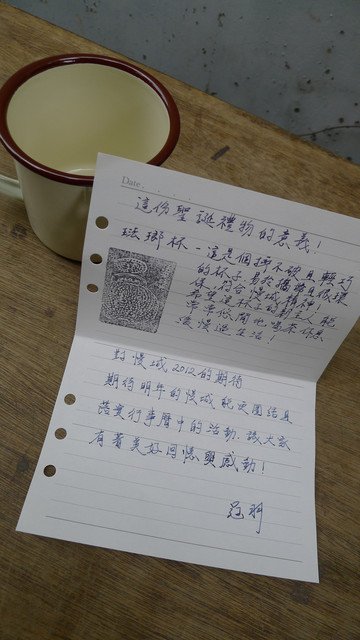 Date
這份聖誕禮物的意義！
琺瑯杯－這是個摔不破且輕巧
的杯子，易於攜帶且很環
保，符合慢城精神！
希望這杯子的新主人能
常常悠閒地喝茶休息
慢慢過生活！
對慢城2012的期待
期待明年的慢城能更團結且
落實行事曆中的活動，讓大家
有著美好回憶與感動！